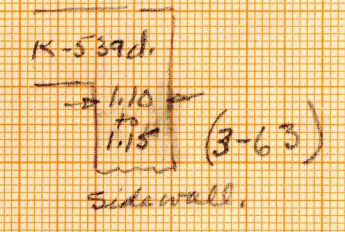 K-539d.
1.10
to
1.15
(3-63)
sidewall.